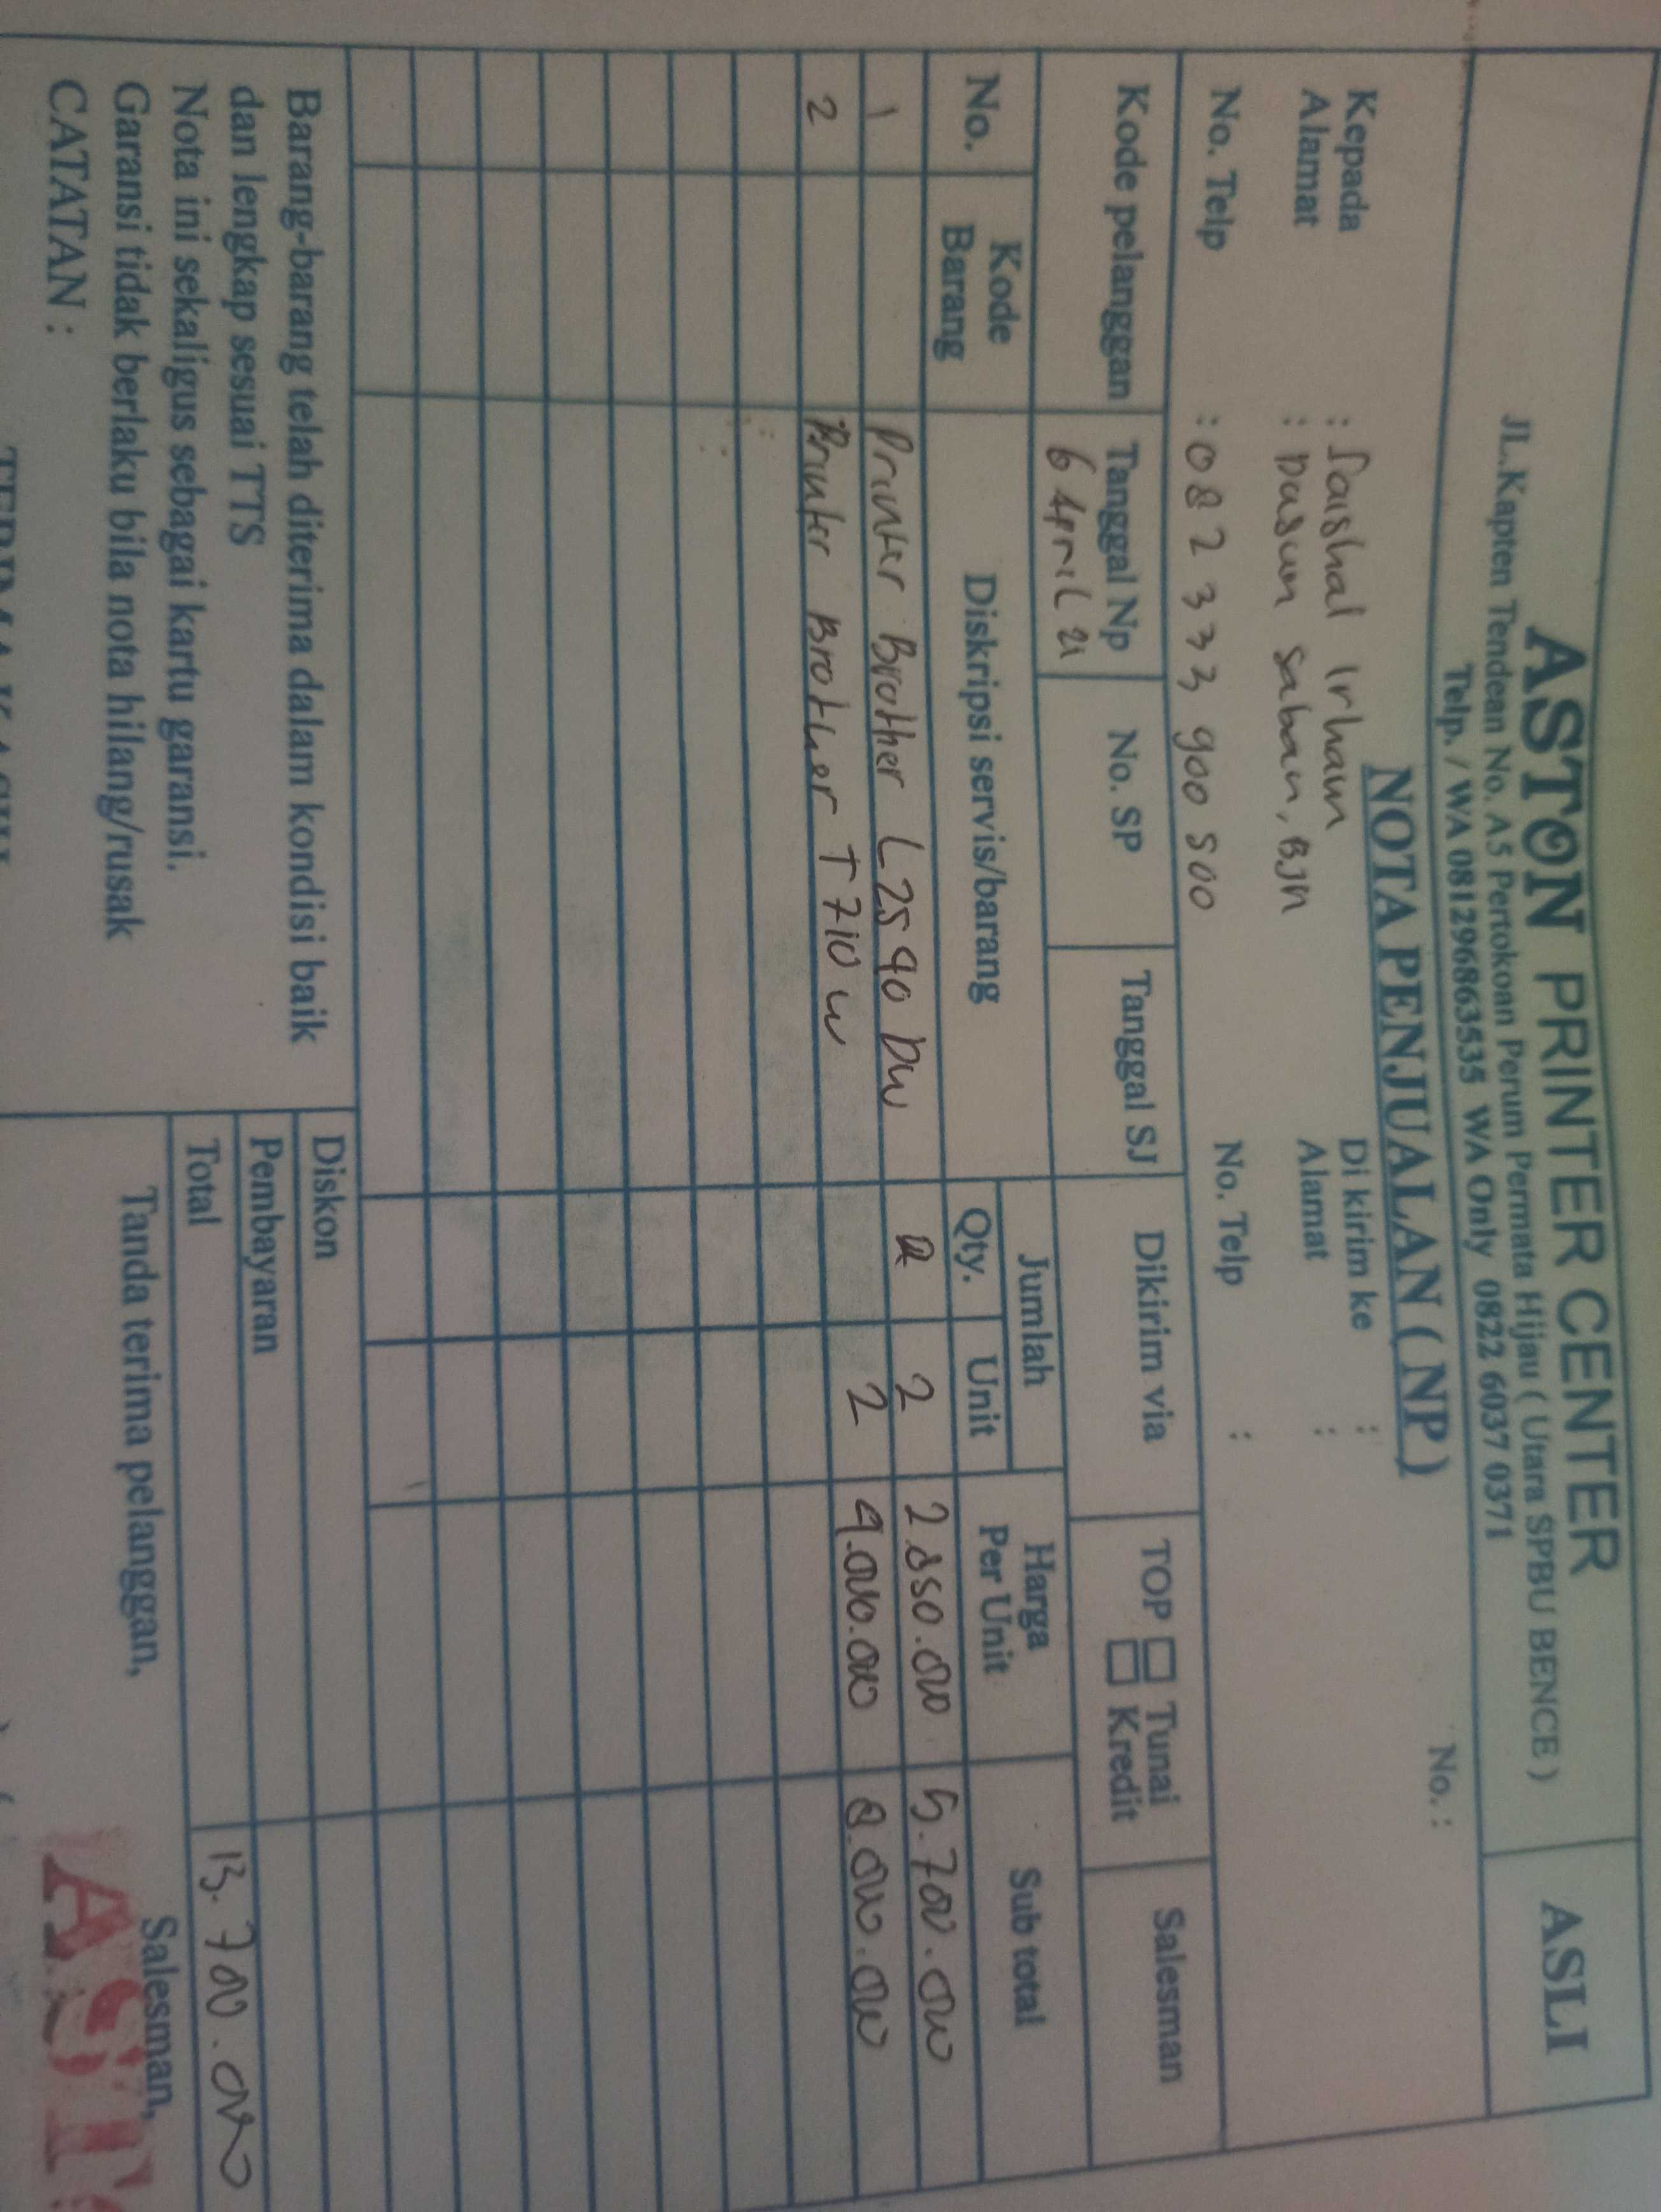 ASTON PRINTER CENTER
ASLI
JL.Kapten Tendean No. A5 Pertokoan Perum Permata Hijau ( Utara SPBU BENCE )
Telp. / WA 081296863535 WA Only 0822 6037 0371
NOTA PENJUALAN ( NP )
No. :
Kepada : Irham
Di kirim ke :
Alamat : saban, BJN
Alamat :
No. Telp : 082 333 900 500
No. Telp :
Kode pelanggan Tanggal Np No. SP Tanggal SJ Dikirim via TOP Tunai Kredit Salesman
6 April 21
No. Kode Barang Diskripsi servis/barang Jumlah Qty. Unit Harga Per Unit Sub total
1 Printer Brother L2590 DW 2 2.850.000 5.700.000
2 Printer Brother T710 W 2 4.000.000 8.000.000
Barang-barang telah diterima dalam kondisi baik
dan lengkap sesuai TTS
Nota ini sekaligus sebagai kartu garansi.
Garansi tidak berlaku bila nota hilang/rusak
CATATAN :
Diskon
Pembayaran
Total 13.700.000
Tanda terima pelanggan,
Salesman,